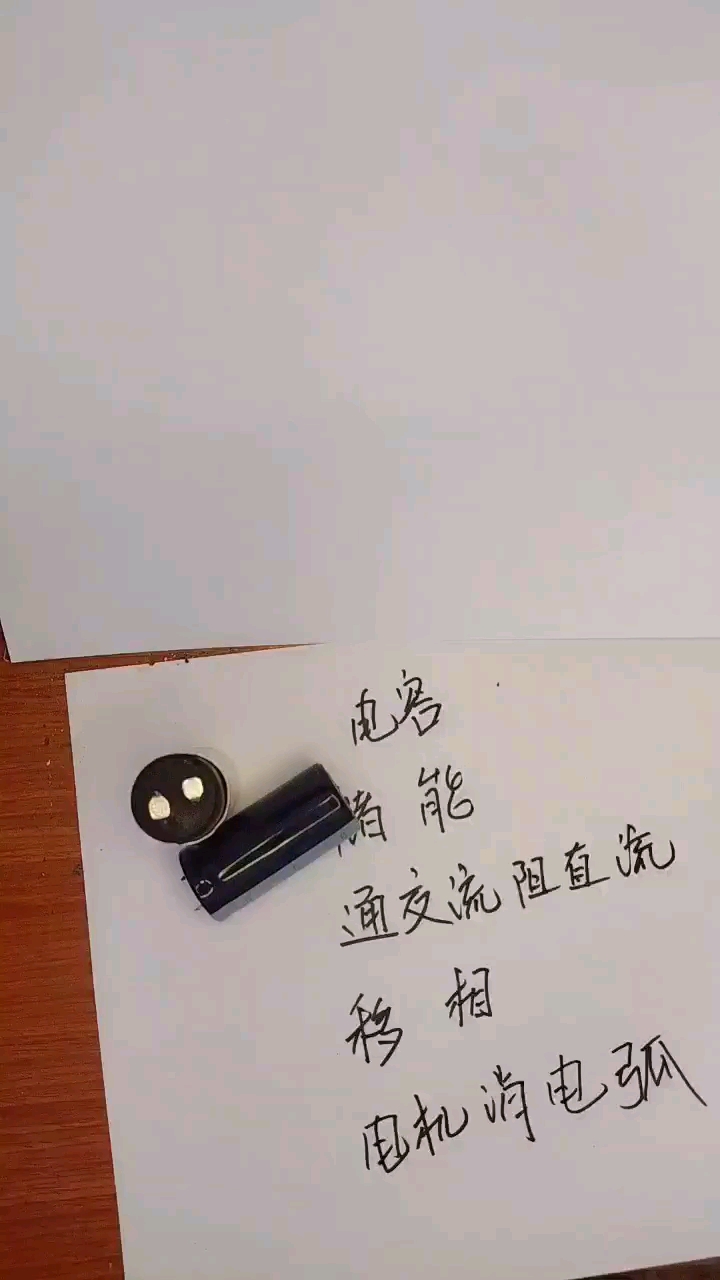 电容
储能
通交流阻直流
移相
电机消电弧